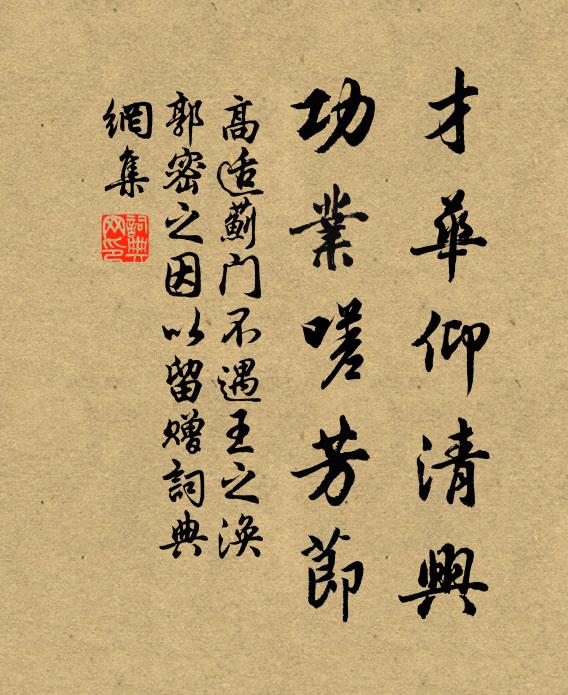 才華仰清興
功業嗟芳節
高适薊门不遇王之渙
郭密之因以留赠詞典
網集
詞典网印